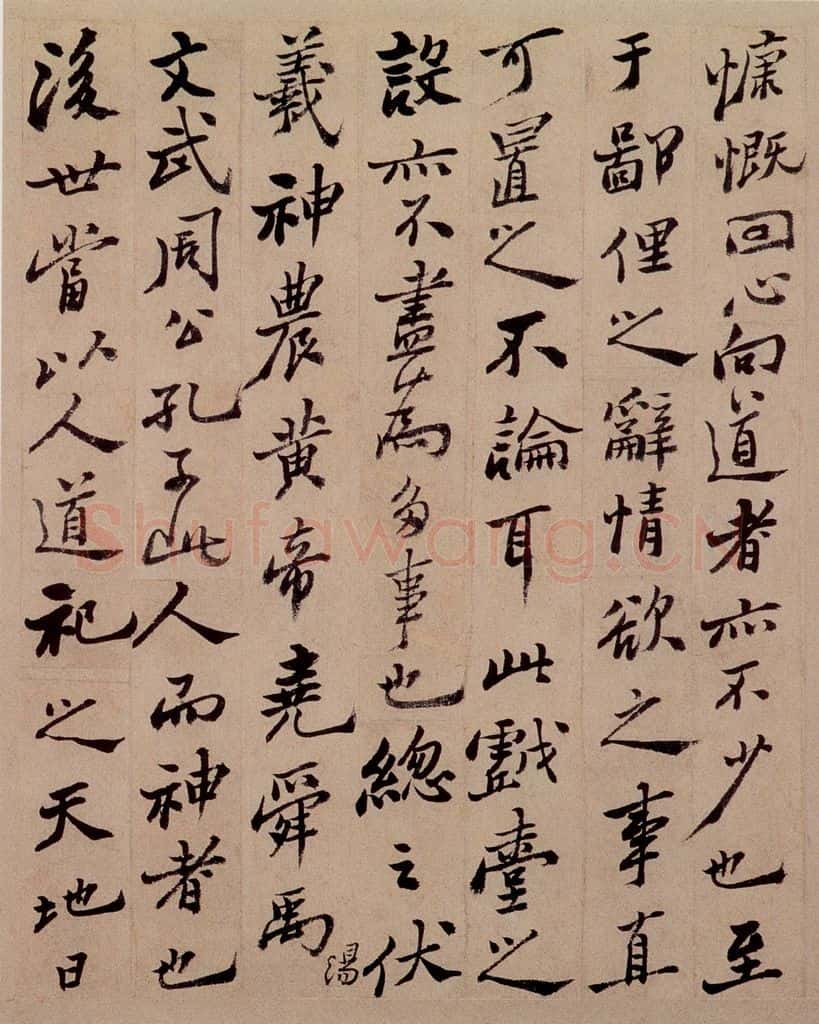 慷慨回心向道者亦不少也至
于鄙俚之辭情欲之事直
可置之不論耳此戲臺之
設亦不盡爲多事也總之伏
羲神農黃帝堯舜禹湯
文武周公孔子此人而神者也
後世當以人道祀之天地日
Shufawang.CN